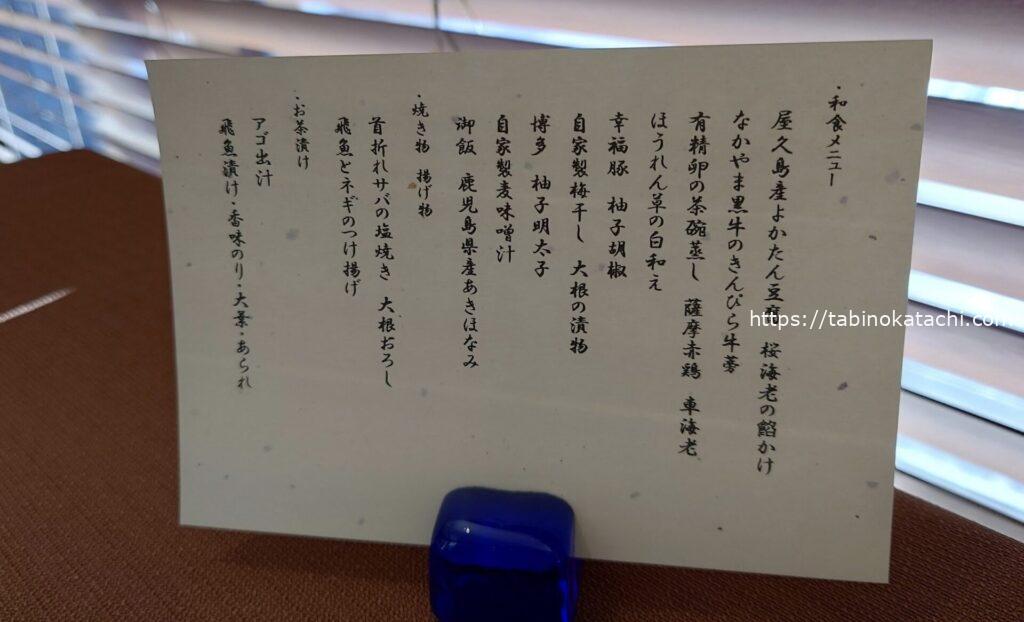 ・和食メニュー
屋久島産よかたん豆腐 桜海老の餡かけ
なかやま黒牛のきんぴら牛蒡
有精卵の茶碗蒸し 薩摩赤鶏 車海老
ほうれん草の白和え
幸福豚 柚子胡椒
自家製梅干し 大根の漬物
博多 柚子明太子
自家製麦味噌汁
御飯 鹿児島県産あきほなみ
・焼き物 揚げ物
首折れサバの塩焼き 大根おろし
飛魚とネギのつけ揚げ
・お茶漬け
アゴ出汁
飛魚漬け・香味のり・大葉・あられ
https://tabinokatachi.com